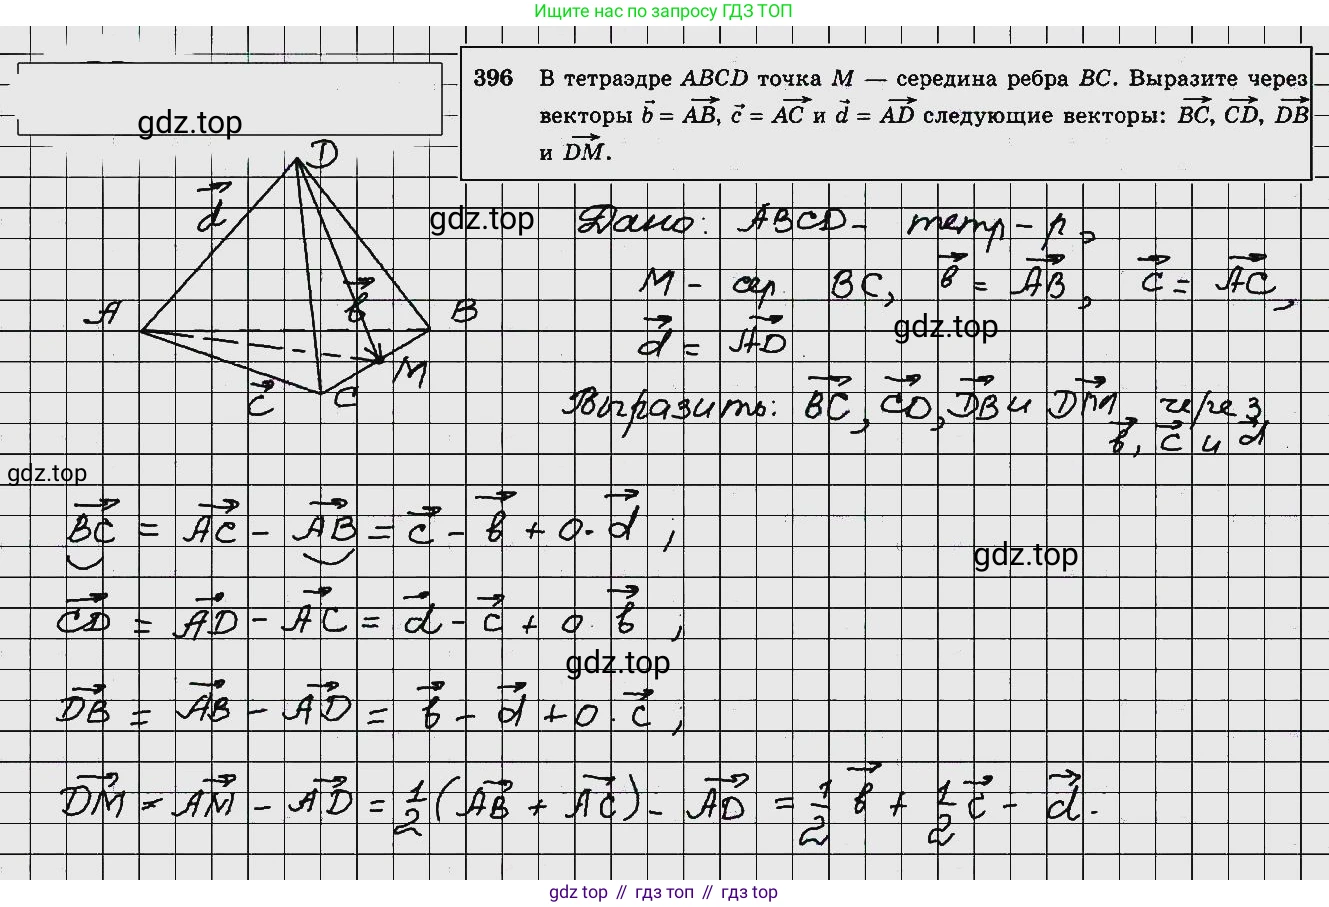 Ищите нас по запросу ГДЗ ТОП
gdz.top
396 В тетраэдре ABCD точка M — середина ребра BC. Выразите через
векторы b⃗ = A⃗B⃗, c⃗ = A⃗C⃗ и d⃗ = A⃗D⃗ следующие векторы: B⃗C⃗, C⃗D⃗, D⃗B⃗
и D⃗M⃗.
D
d⃗
b⃗
A
B
M
c⃗
C
gdz.top
Дано: ABCD - тетр-р,
M - сер. BC, b⃗ = A⃗B⃗, c⃗ = A⃗C⃗,
d⃗ = A⃗D⃗
gdz.top
Выразить: B⃗C⃗, C⃗D⃗, D⃗B⃗ и D⃗M⃗ через
b⃗, c⃗ и d⃗
gdz.top
B⃗C⃗ = A⃗C⃗ - A⃗B⃗ = c⃗ - b⃗ + 0·d⃗;
gdz.top
C⃗D⃗ = A⃗D⃗ - A⃗C⃗ = d⃗ - c⃗ + 0·b⃗;
gdz.top
D⃗B⃗ = A⃗B⃗ - A⃗D⃗ = b⃗ - d⃗ + 0·c⃗;
D⃗M⃗ = A⃗M⃗ - A⃗D⃗ = 1/2(A⃗B⃗ + A⃗C⃗) - A⃗D⃗ = 1/2 b⃗ + 1/2 c⃗ - d⃗.
gdz top // гдз топ // gdz top